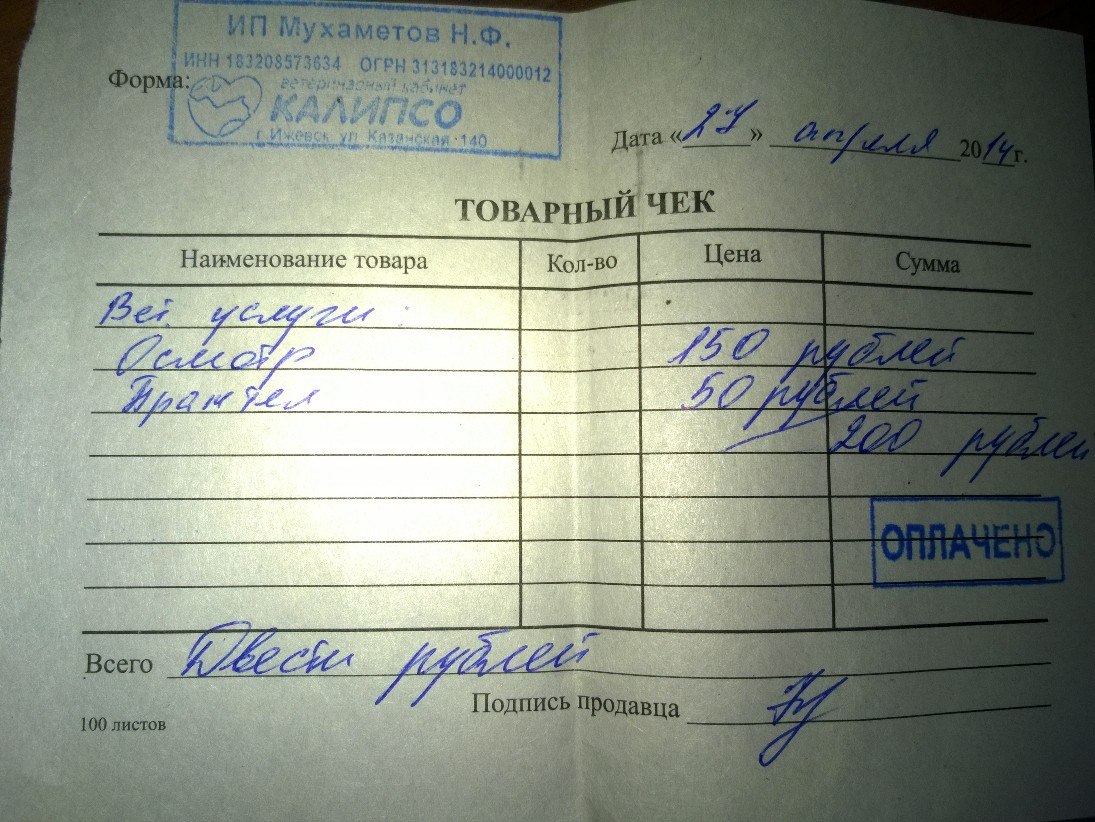 ИП Мухаметов Н.Ф.
ИНН 183208573634 ОГРН 313183214000012
Форма:
ветеринарный кабинет
КАЛИПСО
г. Ижевск, ул. Казанская 140
Дата «27» апреля 2014г.
ТОВАРНЫЙ ЧЕК
Наименование товара Кол-во Цена Сумма
Вет услуги:
Осмотр 150 рублей
Празител 50 рублей
200 рублей
ОПЛАЧЕНО
Всего Двести рублей
Подпись продавца
100 листов